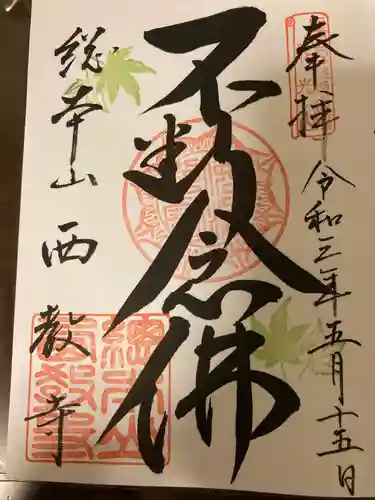 奉拝
令和三年五月十五日
不断念佛
総本山
西教寺